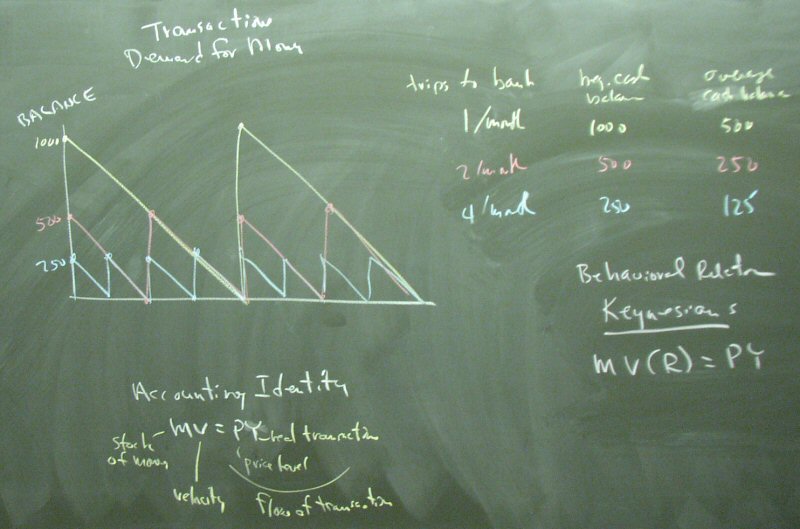 Transaction
Demand for Mony
BALANCE
1000
500
250
trips to bank beg. cash balance average cash balance
1/month 1000 500
2/month 500 250
4/month 250 125
Behavioral Relation
Keynesians
MV(R) = PY
Accounting Identity
MV = PY
real transaction
stock of money
price level
velocity
flow of transaction